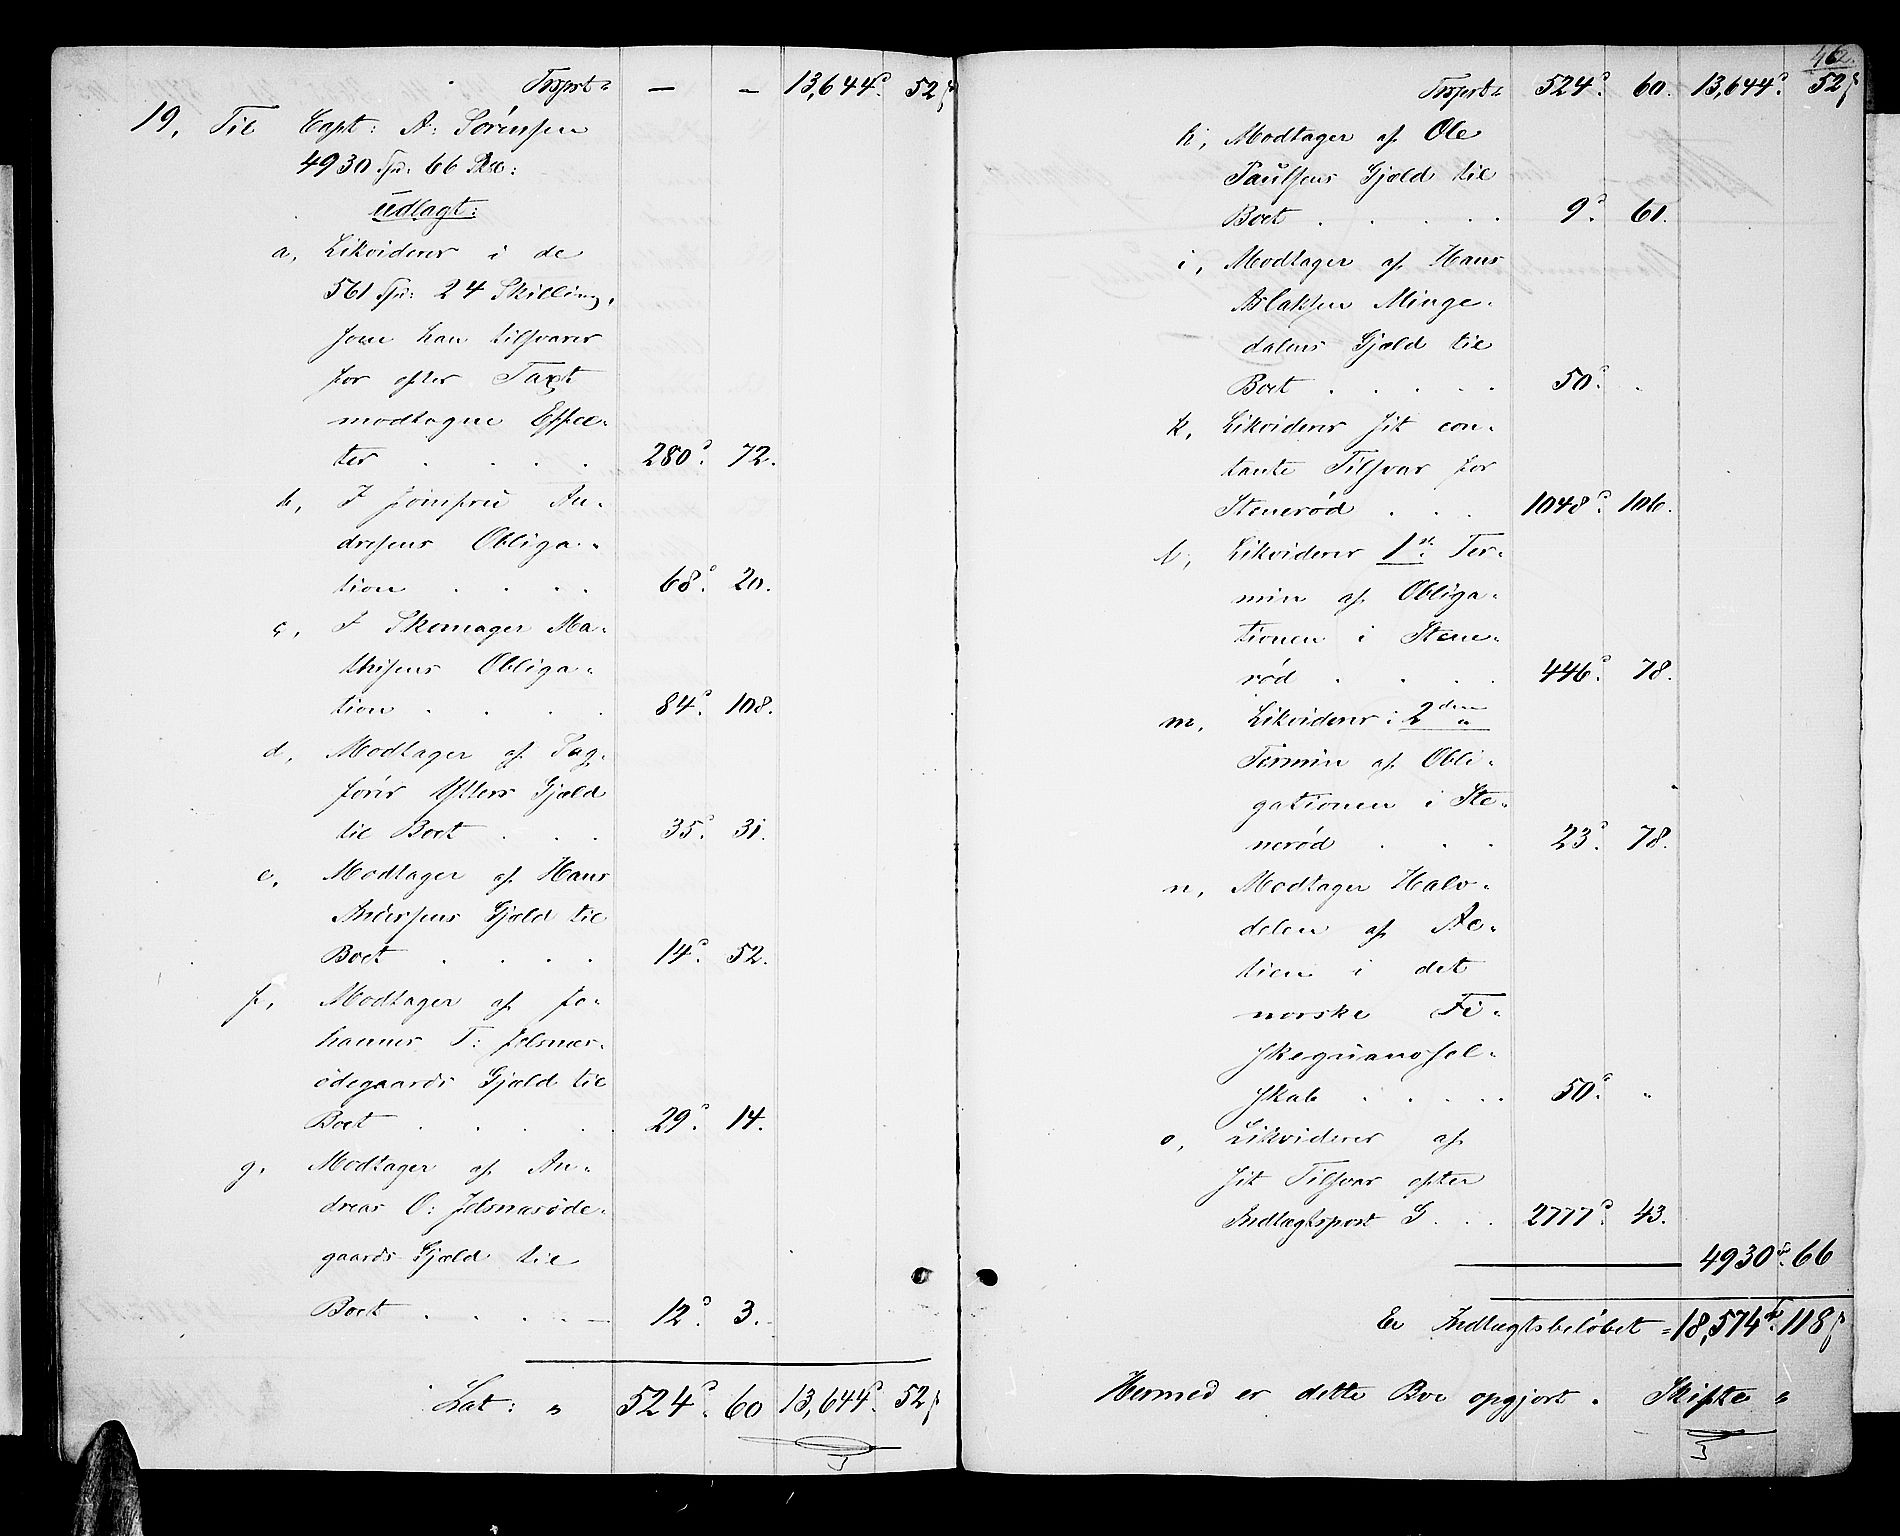 Trsprt = — — 13,644 52
19, Til Capt: A: Sørensen
4930 Spd: 66 Sk:
udlagt:
a, Likviderer i de
561 Spd: 24 Skilling,
som han tilsvarer
for efter Taxt
modtagne Effec-
ter . . . . 280. 72.
b, I Jomfru An-
dresens Obliga-
tion . . . . 68. 20.
c, I Skomager Ma-
thisens Obliga-
tion . . . . 84. 108.
d, Modtager af Sag-
fører Gjæld
til Boet . . . 35. 31.
e, Modtager af Hans
Andersens Gjæld til
Boet . . . . 14. 52.
f, Modtager af Jo-
hannes T: Jelsnæs-
ødegaards Gjæld til
Boet . . . . . 29. 14.
g, Modtager af An-
dreas O: Jelsnæsøde-
gaards Gjæld til
Boet . . . . 12. 3.
Lat: " 524. 60 13,644. 52
462.
Trsprt = 524. 60. 13,644. 52
h, Modtager af Ole
Paulsens Gjæld til
Boet . . . . . 9. 61.
i, Modtager af Hans
Aslaksen Minge-
dalens Gjæld til
Boet . . . . . 50. "
k, Likviderer sit con-
tante Tilsvar for
Stenerød . . . 1048. 106.
l, Likviderer 1st Ter-
min af Obliga-
tionen i Stene-
rød . . . . 446. 78.
m, Likviderer i 2den
Termin af Obli-
gationen i Ste-
nerød . . . 23. 78.
n, Modtager Halv-
delen af Ac-
tien i det
norske Fi-
skeguanosel-
skab . . . . . 50. "
o, Likviderer af
sit Tilsvar efter
Indtægtspost G . . . 2777. 43.
4930. 66
Er Indtægtsbeløbet = 18,574. 118
Hermed er dette Boe opgjort. Skifte "